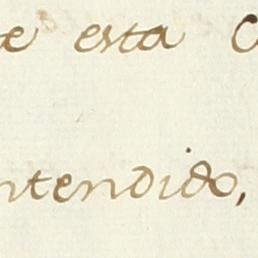 te esta C
ntendido,